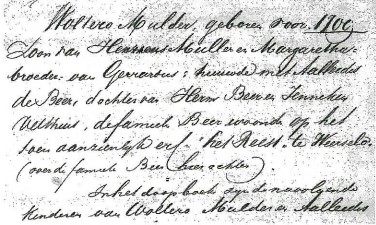 Woltero Mulder, geboren voor 1700
Zoon van Hermens Muller en Margaretha
broeder van Gerrardus; trouwde met Aalleides
de Beer, dochter van Herms Beer en Jenneken
Velthuis, de familie Beer woonde op het
toen aanzienlijk erf "het Reest" te Weerselo
(over de familie Beer hierachter)
In het doopboek zijn de navolgende
kinderen van Woltero Mulder en Aalleides